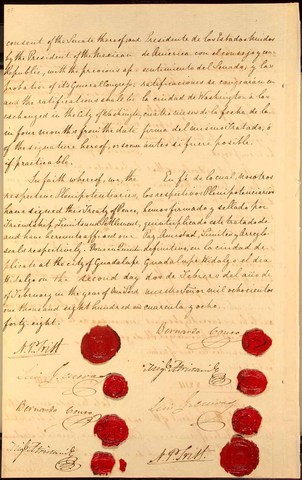 consent of the Senate thereof; and
by the President of the Mexican
Republic, with the previous ap-
probation of its General Congress;
and the ratifications shall be
exchanged in the City of Washington,
in four months from the date
of the signature hereof, or sooner
if practicable.
In faith whereof, we, the
respective Plenipotentiaries,
have signed this Treaty of Peace,
Friendship, Limits and Settlement,
and have hereunto affixed our
seals respectively. Done in Quintu-
plicate at the City of Guadalupe
Hidalgo on the second day
of February in the year of Our Lord
one thousand eight hundred and
forty eight.
N. P. Trist
Luis G. Cuevas
Bernardo Couto
Migl. Atristain
Presidente de los Estados Unidos
de America, con el consejo y con-
sentimiento del Senado; y las
ratificaciones se canjearán en
la ciudad de Washington a los
cuatro meses de la fecha de la
firma del mismo Tratado, ó
antes si fuere posible.
En fé de lo cual, nosotros
los respectivos Plenipotenciarios
hemos firmado y sellado por
quintuplicado este tratado de
Paz, Amistad, Límites y Arreglo
definitivo, en la ciudad de
Guadalupe Hidalgo el dia
dos de Febrero del año de
nuestro Señor mil ochocientos
cuarenta y ocho.
Bernardo Couto
Migl. Atristain
Luis G. Cuevas
N. P. Trist